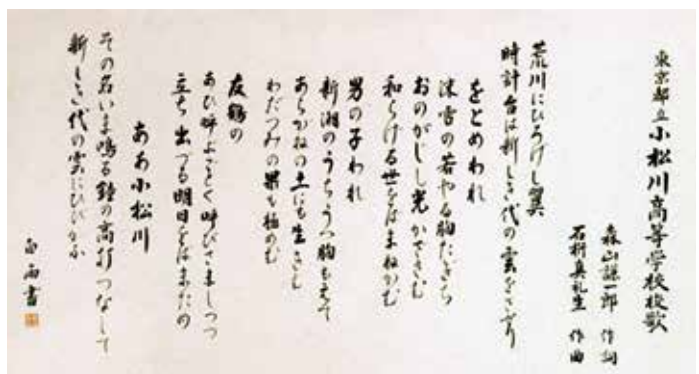 東京都立小松川高等学校校歌
森山謙一郎 作詞
石桁真礼生 作曲
荒川にひろげし翼
時計台は新しき代の雲をさぐり
をとめわれ
沫雪の若やる胸たぎち
おのがじし光かざさむ
和らげる世をばまねかむ
男の子われ
新潮のうちうつ胸もえて
あらがねの土にも生きむ
わだつみの果も極めむ
友鶴の
あひ呼ぶごとく呼びさましつつ
立ち出づる明日をば
ああ小松川
その名いま鳴る鐘の高打つなして
新しき代の雲にひびかふ
雨書